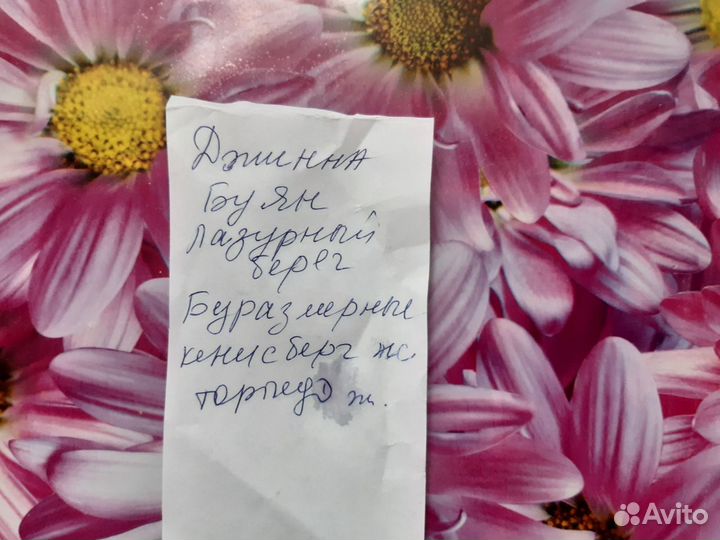 Джинна
Буян
Лазурный
берег
Буразмерные
кенисберг ж.
торпедо ж.
Avito